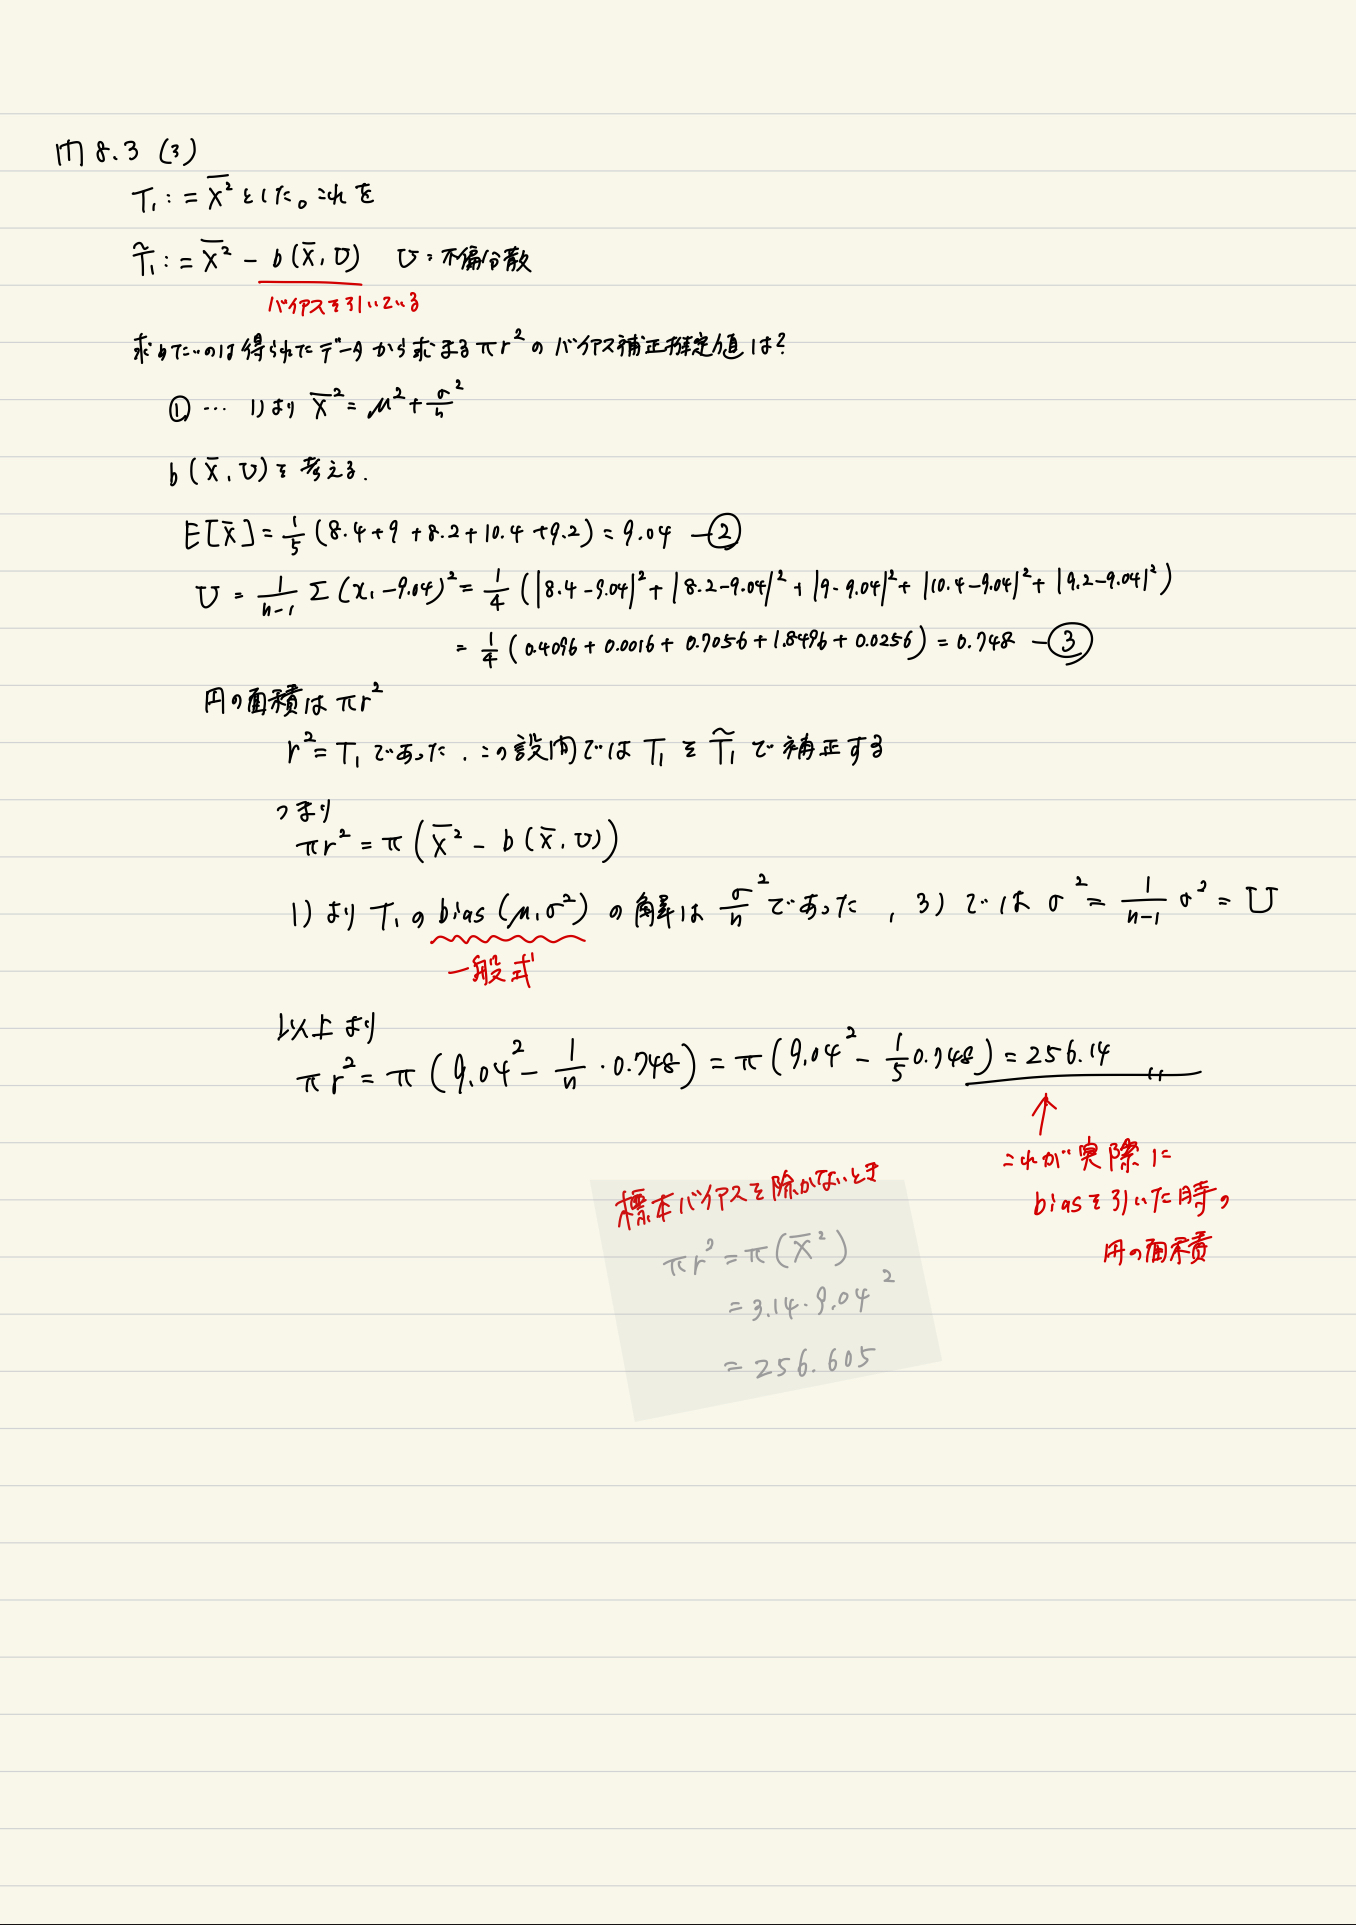 問 8.3 (3)
T₁ := X̄² とした。これを
T̃₁ := X̄² - b(X̄, U)　U : 不偏分散
バイアスを引いている
求めたいのは得られたデータから求まる πr² のバイアス補正推定値は?
① … 1)より X̄² = μ² + σ²/n
b(X̄, U) を考える.
E[X̄] = 1/5 (8.4+9+8.2+10.4+9.2) = 9.04 —②
U = 1/(n-1) Σ(x₁-9.04)² = 1/4 (|8.4-9.04|² + |8.2-9.04|² + |9-9.04|² + |10.4-9.04|² + |9.2-9.04|²)
= 1/4 (0.4096 + 0.0016 + 0.7056 + 1.8496 + 0.0256) = 0.748 —③
円の面積は πr²
r² = T₁ であった. この設問では T₁ を T̃₁ で補正する
つまり
πr² = π(X̄² - b(X̄, U))
1)より T₁の bias(μ, σ²) の解は σ²/n であった, 3)では σ² = 1/(n-1) σ² = U
一般式
以上より
πr² = π(9.04² - 1/n · 0.748) = π(9.04² - 1/5 0.748) = 256.14
これが実際に
biasを引いた時の
円の面積
標本バイアスを除かないとき
πr² = π(X̄²)
= 3.14 · 9.04²
= 256.605